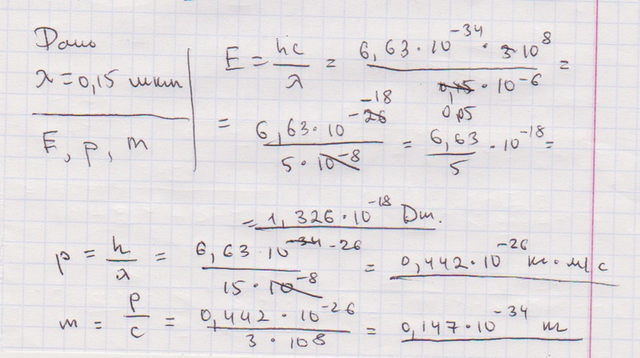 Дано
λ = 0,15 мкм
E, p, m
E = hc/λ = 6,63·10^-34 · 3·10^8 / 0,15·10^-6 =
0,05
= 6,63·10^-26 -18 / 5·10^-8 = 6,63/5 · 10^-18 =
= 1,326·10^-18 Дж.
p = h/λ = 6,63·10^-34 -26 / 15·10^-8 = 0,442·10^-26 кг·м/с
m = p/c = 0,442·10^-26 / 3·10^8 = 0,147·10^-34 кг